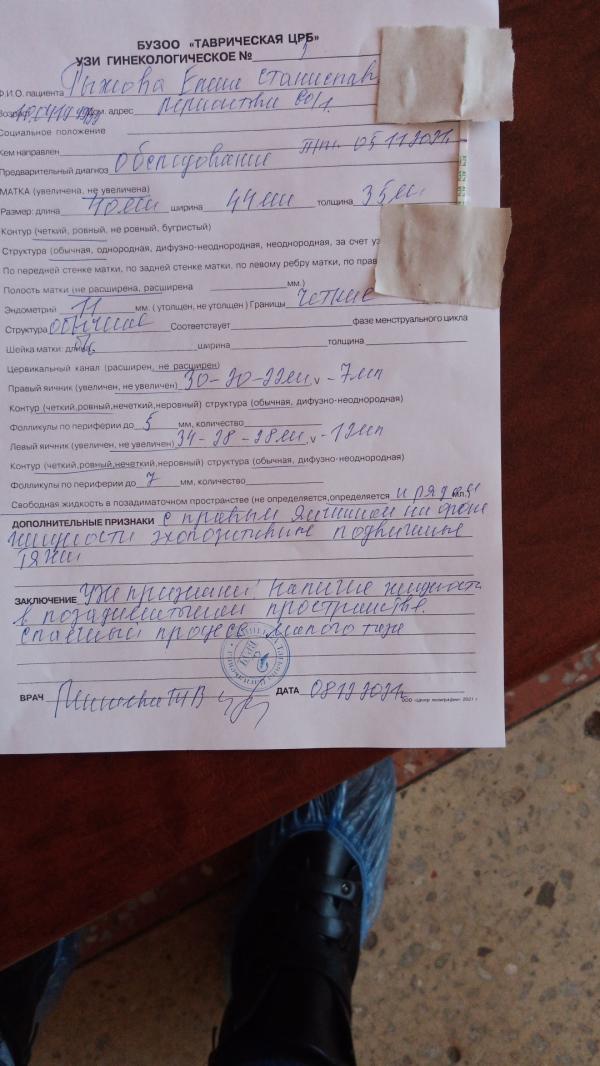 БУЗОО «ТАВРИЧЕСКАЯ ЦРБ»
УЗИ ГИНЕКОЛОГИЧЕСКОЕ №
Ф.И.О. пациента Станислав
Возраст дом. адрес 80/1.
Социальное положение
Кем направлен 05 11 2021г.
Предварительный диагноз Обследование
МАТКА (увеличена, не увеличена)
Размер: длина 40мм ширина 44мм толщина 35мм
Контур (четкий, ровный, не ровный, бугристый)
Структура (обычная, однородная, дифузно-неоднородная, неоднородная, за счет
По передней стенке матки, по задней стенке матки, по левому ребру матки, по
Полость матки (не расширена, расширена мм.)
Эндометрий 11 мм. ( утолщен, не утолщен ) Границы четкие
Структура обычная Соответствует фазе менструального цикла
Шейка матки: длина б/о ширина толщина
Цервикальный канал (расширен, не расширен)
Правый яичник (увеличен, не увеличен) 30-20-22мм, v - 7мл
Контур (четкий,ровный,нечеткий,неровный) структура (обычная, дифузно-неоднородная)
Фолликулы по периферии до 5 мм, количество
Левый яичник (увеличен, не увеличен) 34-28-28мм, v - 12мл
Контур (четкий,ровный,нечеткий,неровный) структура (обычная, дифузно-неоднородная)
Фолликулы по периферии до 7 мм, количество
Свободная жидкость в позадиматочном пространстве (не определяется,определяется и рядом мл.)
ДОПОЛНИТЕЛЬНЫЕ ПРИЗНАКИ с правым яичником на фоне
жидкости эхопозитивные подвижные
тяжи
ЗАКЛЮЧЕНИЕ Узи признаки: наличие жидкости
в позадиматочном пространстве.
спаечный процесс малого таза
ВРАЧ ДАТА 2021г.
ООО «Центр полиграфии» 2021 г.